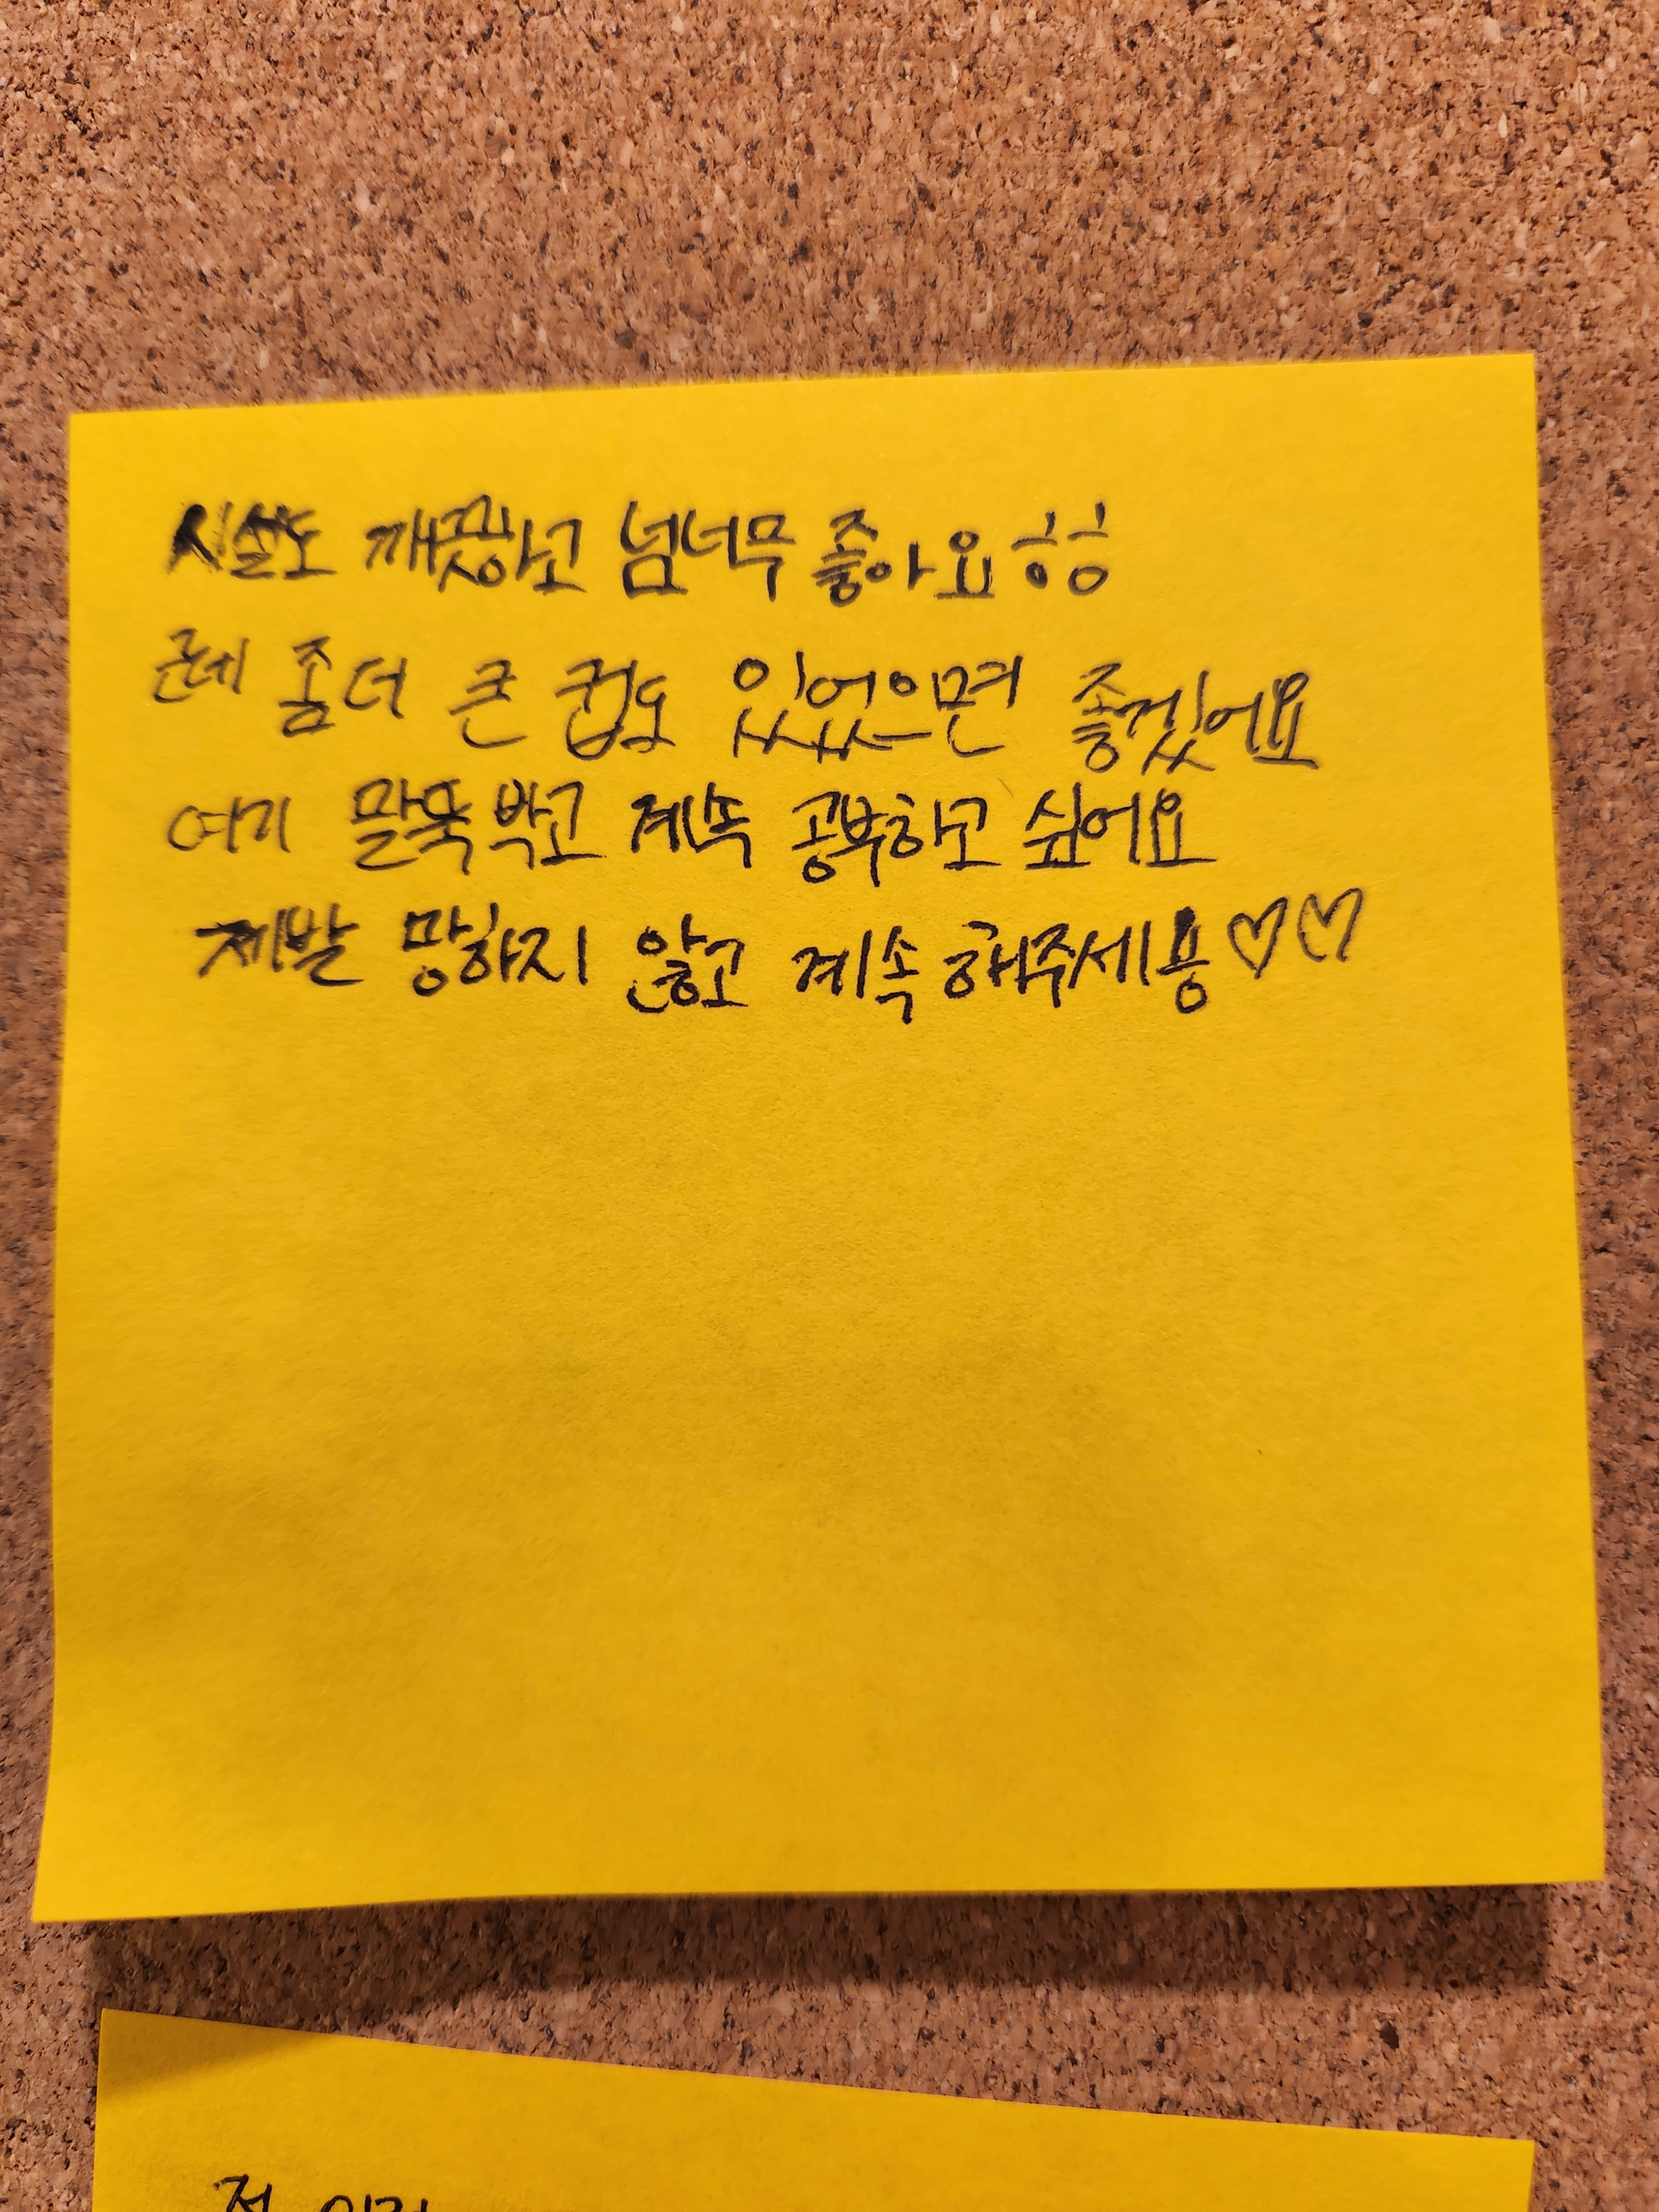 시설도 깨끗하고 넘너무 좋아요 ㅎㅎ
근데 좀 더 큰 컵도 있었으면 좋겠어요
여기 말뚝 박고 계속 공부하고 싶어요
제발 망하지 않고 계속 해주세용♡♡